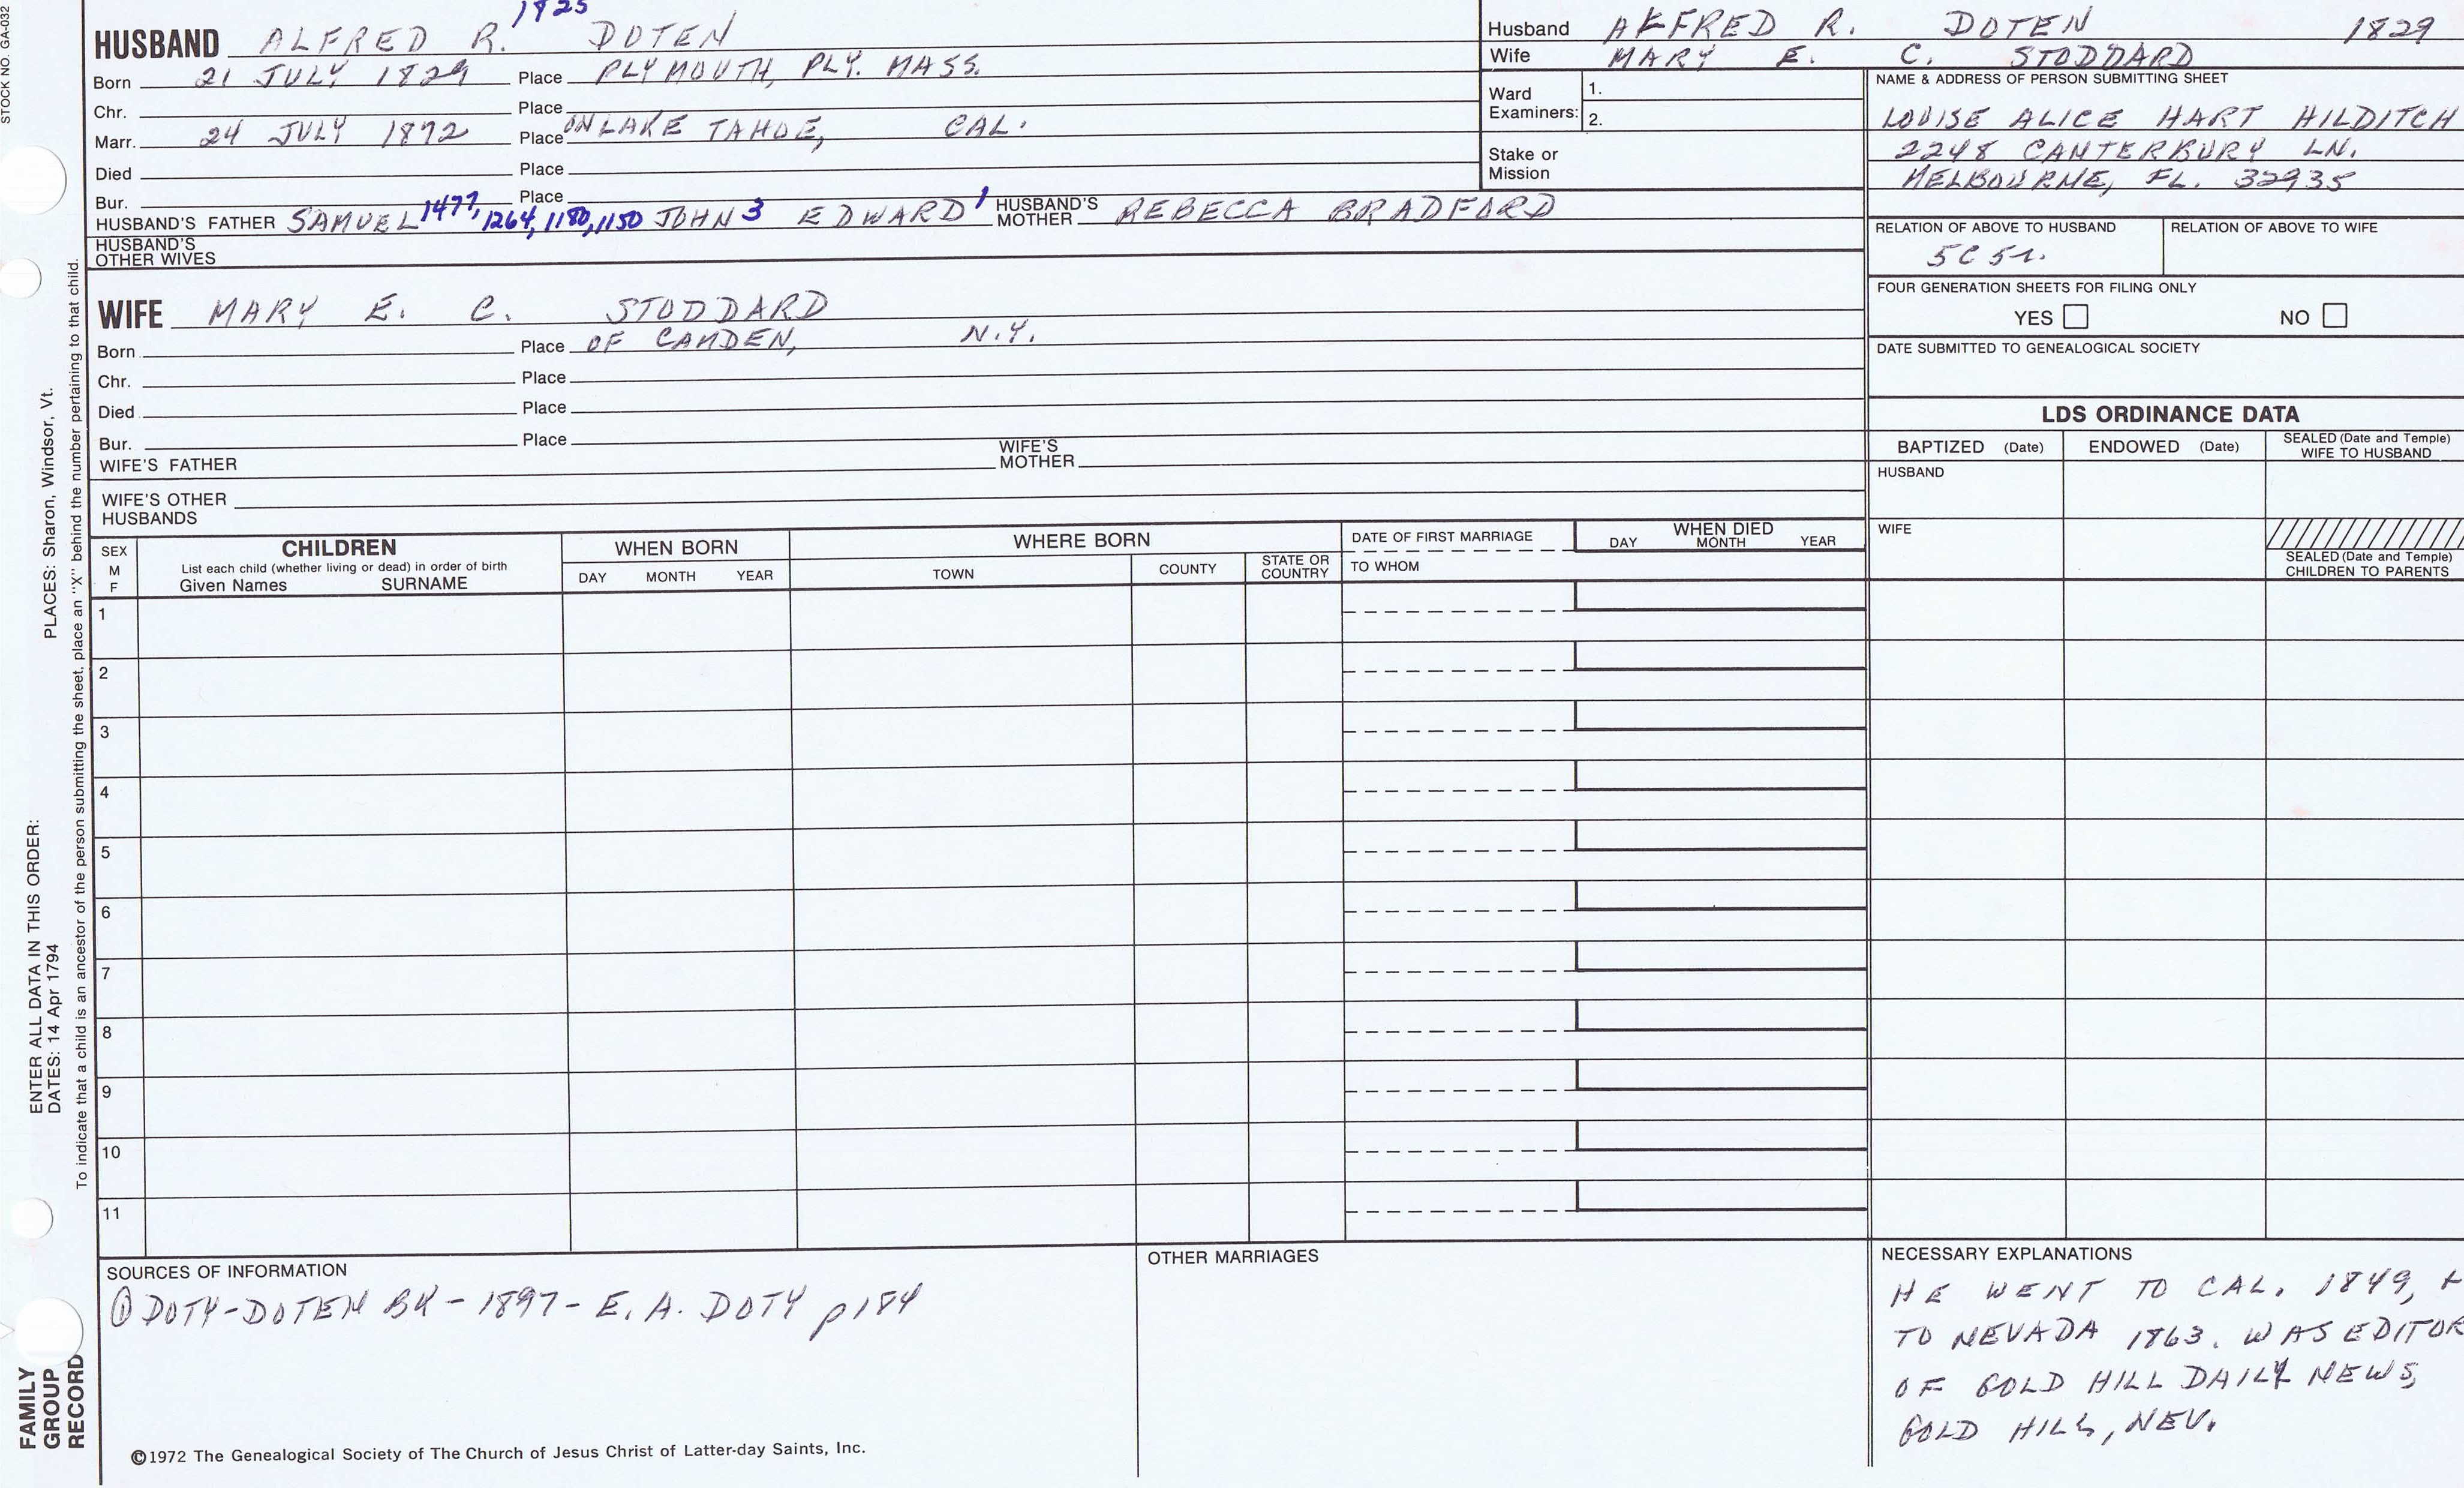 STOCK NO. GA-032
HUSBAND ALFRED R. 1825 DOTEN
Born 21 JULY 1829 Place PLYMOUTH, PLY. MASS.
Chr. Place
Marr. 24 JULY 1872 Place ON LAKE TAHOE, CAL.
Died Place
Bur. Place
HUSBAND'S FATHER SAMUEL 1477, 1264, 1180, 1150 JOHN 3 EDWARD 1 HUSBAND'S MOTHER REBECCA BRADFORD
HUSBAND'S OTHER WIVES
WIFE MARY E. C. STODDARD
Born Place OF CAMDEN, N.Y.
Chr. Place
Died Place
Bur. Place
WIFE'S FATHER WIFE'S MOTHER
WIFE'S OTHER HUSBANDS
Husband ALFRED R. DOTEN 1829
Wife MARY E. C. STODDARD
Ward Examiners: 1.
2.
Stake or Mission
NAME & ADDRESS OF PERSON SUBMITTING SHEET
LOUISE ALICE HART HILDITCH
2248 CANTERBURY LN.
MELBOURNE, FL. 32935
RELATION OF ABOVE TO HUSBAND RELATION OF ABOVE TO WIFE
5C
FOUR GENERATION SHEETS FOR FILING ONLY
YES NO
DATE SUBMITTED TO GENEALOGICAL SOCIETY
LDS ORDINANCE DATA
BAPTIZED (Date) ENDOWED (Date) SEALED (Date and Temple) WIFE TO HUSBAND
HUSBAND
WIFE
SEALED (Date and Temple) CHILDREN TO PARENTS
SEX M F
CHILDREN
List each child (whether living or dead) in order of birth
Given Names SURNAME
WHEN BORN
DAY MONTH YEAR
WHERE BORN
TOWN COUNTY STATE OR COUNTRY
DATE OF FIRST MARRIAGE
TO WHOM
WHEN DIED
DAY MONTH YEAR
1
2
3
4
5
6
7
8
9
10
11
SOURCES OF INFORMATION
① DOTY-DOTEN BK - 1897 - E. A. DOTY p184
OTHER MARRIAGES
NECESSARY EXPLANATIONS
HE WENT TO CAL. 1849, +
TO NEVADA 1863. WAS EDITOR
OF GOLD HILL DAILY NEWS,
GOLD HILL, NEV.
©1972 The Genealogical Society of The Church of Jesus Christ of Latter-day Saints, Inc.
FAMILY GROUP RECORD
ENTER ALL DATA IN THIS ORDER:
DATES: 14 Apr 1794 PLACES: Sharon, Windsor, Vt.
To indicate that a child is an ancestor of the person submitting the sheet, place an "X" behind the number pertaining to that child.